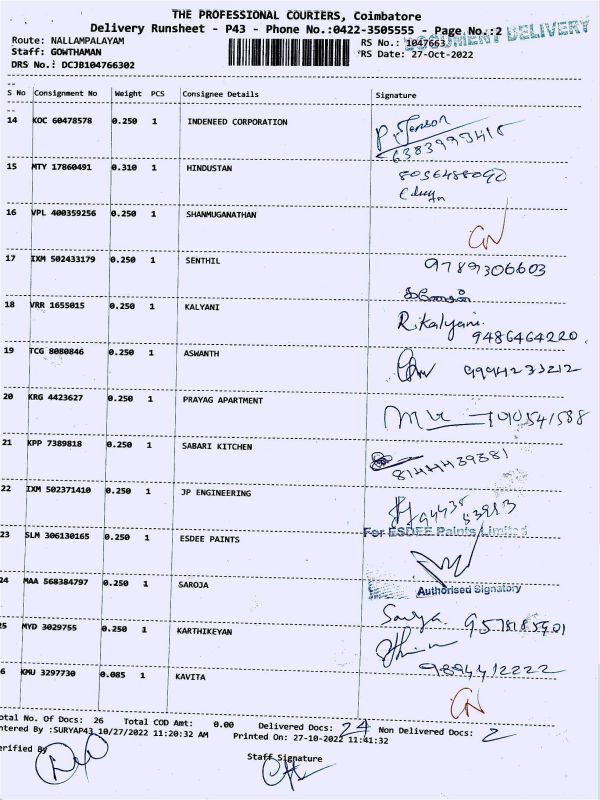 THE PROFESSIONAL COURIERS, Coimbatore
Delivery Runsheet - P43 - Phone No.:0422-3505555 - Page No.:2
DOCUMENT DELIVERY
Route: NALLAMPALAYAM RS No.: 1047663
Staff: GOWTHAMAN RS Date: 27-Oct-2022
DRS No.: DCJB104766302
S No Consignment No Weight PCS Consignee Details Signature
14 KOC 60478578 0.250 1 INDENEED CORPORATION
6383993415
15 MTY 17860491 0.310 1 HINDUSTAN
8056488090
16 VPL 400359256 0.250 1 SHANMUGANATHAN
17 IXM 502433179 0.250 1 SENTHIL 9789306603
18 VRR 1655015 0.250 1 KALYANI R.Kalyani
9486464220
19 TCG 8080846 0.250 1 ASWANTH 9994273212
20 KRG 4423627 0.250 1 PRAYAG APARTMENT
21 KPP 7389818 0.250 1 SABARI KITCHEN
8144439381
22 IXM 502371410 0.250 1 JP ENGINEERING
For ESDEE Paints Limited
23 SLM 306130165 0.250 1 ESDEE PAINTS
Authorised Signatory
24 MAA 568384797 0.250 1 SAROJA
Sauya
25 MYD 3029755 0.250 1 KARTHIKEYAN
9894412222
6 KMU 3297730 0.085 1 KAVITA
otal No. Of Docs: 26 Total COD Amt: 0.00 Delivered Docs: 24 Non Delivered Docs: 2
ntered By :SURYAP43 10/27/2022 11:20:32 AM Printed On: 27-10-2022 11:41:32
erified By Staff Signature